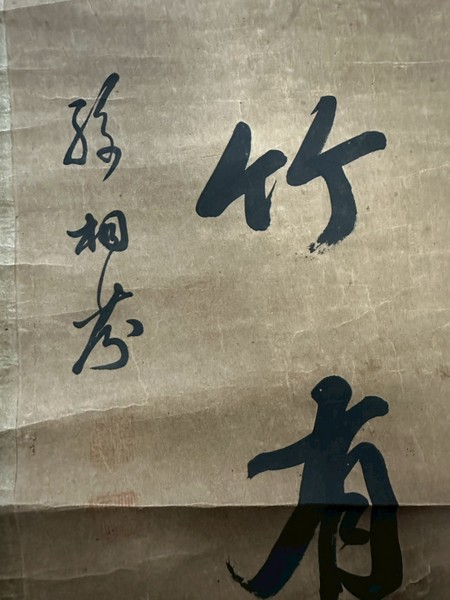 竹有
孫相芬